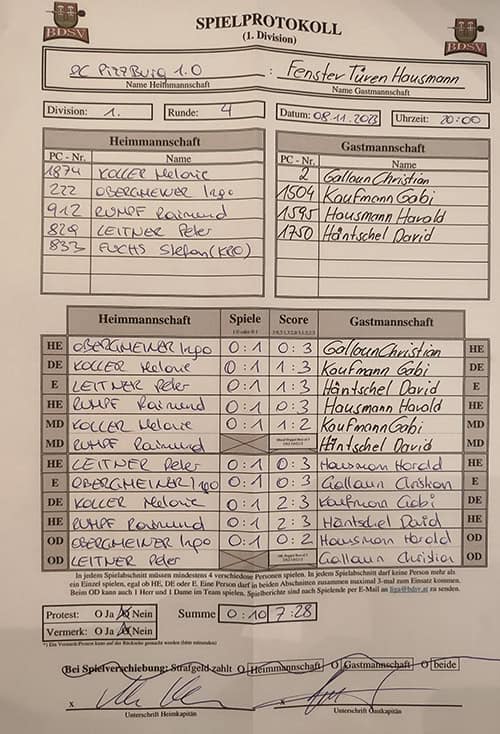 SPIELPROTOKOLL
(1. Division)
BDSV BDSV
SC PizzBurg 1.0 : Fenster Türen Hausmann
Name Heimmannschaft Name Gastmannschaft
Division: 1. Runde: 4 Datum: 08.11.2023 Uhrzeit: 20:00
Heimmannschaft Gastmannschaft
PC - Nr. Name PC - Nr. Name
1874 KOLLER Melanie 2 Gallaun Christian
222 OBERGMEINER Ingo 1504 Kaufmann Gabi
912 RUMPF Raimund 1595 Hausmann Harald
829 LEITNER Peter 1750 Häntschel David
833 FUCHS Stefan (KPO)
Heimmannschaft Spiele Score Gastmannschaft
1:0 oder 0:1
HE OBERGMEINER Ingo 0:1 0:3 Gallaun Christian HE
DE KOLLER Melanie 0:1 1:3 Kaufmann Gabi DE
E LEITNER Peter 0:1 1:3 Häntschel David E
HE RUMPF Raimund 0:1 0:3 Hausmann Harald HE
MD KOLLER Melanie 0:1 1:2 Kaufmann Gabi MD
MD RUMPF Raimund Häntschel David MD
HE LEITNER Peter 0:1 0:3 Hausmann Harald HE
E OBERGMEINER Ingo 0:1 0:3 Gallaun Christian E
DE KOLLER Melanie 0:1 2:3 Kaufmann Gabi DE
HE RUMPF Raimund 0:1 2:3 Häntschel David HE
OD OBERGMEINER Ingo 0:1 0:2 Hausmann Harald OD
OD LEITNER Peter Gallaun Christian OD
In jedem Spielabschnitt müssen mindestens 4 verschiedene Personen spielen. In jedem Spielabschnitt darf keine Person mehr als
ein Einzel spielen, egal ob HE, DE oder E. Eine Person darf in beiden Abschnitten zusammen maximal 3-mal zum Einsatz kommen.
Beim OD kann auch 1 Herr und 1 Dame im Team spielen. Spielberichte sind nach Spielende per E-Mail an liga@bdsv.at zu senden
Protest: O Ja O Nein Summe 0:10 7:28
Vermerk: O Ja O Nein
*) Ein Vermerk/Protest kann auf der Rückseite gemacht werden (bitte ankreuzen)
(Bei Spielverschiebung: Strafgeld zahlt O Heimmannschaft O Gastmannschaft O beide
x x
Unterschrift Heimkapitän Unterschrift Gastkapitän